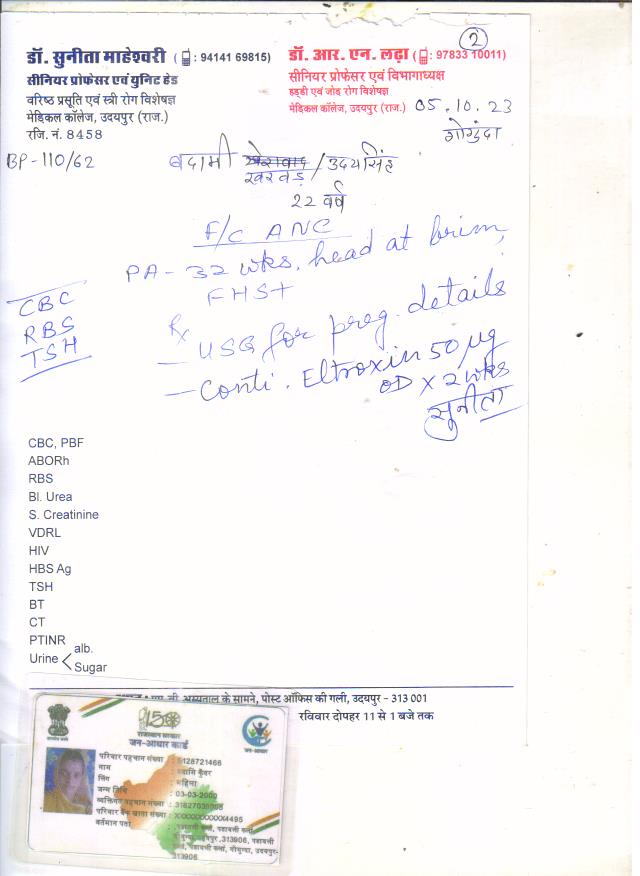 2
डॉ. सुनीता माहेश्वरी ( : 94141 69815)
सीनियर प्रोफेसर एवं युनिट हेड
वरिष्ठ प्रसूति एवं स्त्री रोग विशेषज्ञ
मेडिकल कॉलेज, उदयपुर (राज.)
रजि. नं. 8458
डॉ. आर. एन. लढ़ा ( : 97833 10011)
सीनियर प्रोफेसर एवं विभागाध्यक्ष
हड्डी एवं जोड़ रोग विशेषज्ञ
मेडिकल कॉलेज, उदयपुर (राज.)
05.10.23
गोगुंदा
BP-110/62
बदामी खरवड़ / उदयसिंह
22 वर्ष
F/c ANC
PA - 32 wks, head at brim,
FHS+
CBC
RBS
TSH
Rx
- USG for preg. details
- Conti. Eltroxin 50 µg
OD x 2 wks
सुनीता
CBC, PBF
ABORh
RBS
Bl. Urea
S. Creatinine
VDRL
HIV
HBS Ag
TSH
BT
CT
PTINR
Urine < alb.
Sugar
अस्पताल के सामने, पोस्ट ऑफिस की गली, उदयपुर - 313 001
रविवार दोपहर 11 से 1 बजे तक
150
राजस्थान सरकार
जन-आधार कार्ड
जन-आधार
परिवार पहचान संख्या : 5128721466
नाम : कुँवर
लिंग : महिला
जन्म तिथि : 03-03-2000
व्यक्तिगत पहचान संख्या :
परिवार बैंक खाता संख्या : XXXXXXXXXXX4495
वर्तमान पता :
313906